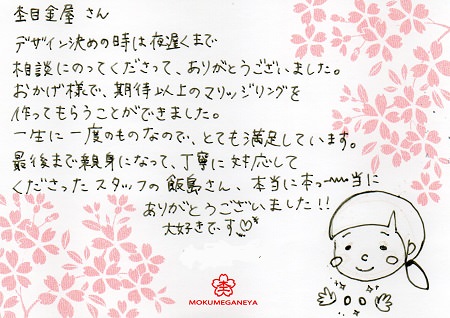 杢目金屋 さん
デザイン決めの時は夜遅くまで
相談にのってくださって、ありがとうございました。
おかげ様で、期待以上のマリッジリングを
作ってもらうことができました。
一生に一度のものなので、とても満足しています。
最後まで親身になって、丁寧に対応して
くださったスタッフの飯島さん、本当に本っ〜〜当に
ありがとうございました!!
大好きです♡
杢
MOKUMEGANEYA